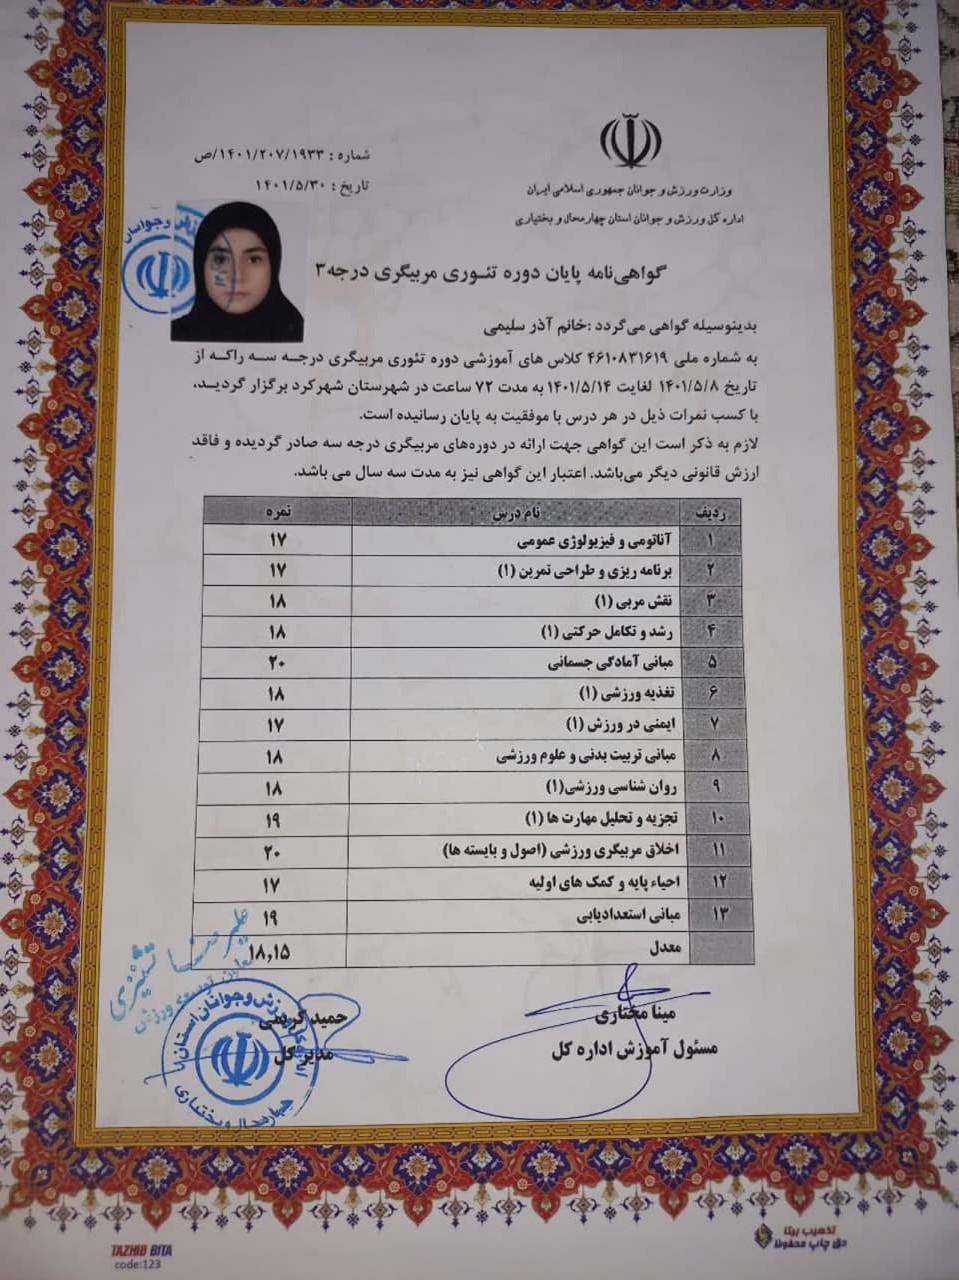 شماره : ۱۴۰۱/۲۰۷/۱۹۳۳/ص
تاریخ : ۱۴۰۱/۵/۳۰
وزارت ورزش و جوانان جمهوری اسلامی ایران
اداره کل ورزش و جوانان استان چهارمحال و بختیاری
گواهی‌نامه پایان دوره تئوری مربیگری درجه۳
بدینوسیله گواهی می‌گردد :خانم آذر سلیمی
به شماره ملی ۴۶۱۰۸۳۱۶۱۹ کلاس های آموزشی دوره تئوری مربیگری درجه سه راکه از
تاریخ ۱۴۰۱/۵/۸ لغایت ۱۴۰۱/۵/۱۴ به مدت ۷۲ ساعت در شهرستان شهرکرد برگزار گردید،
با کسب نمرات ذیل در هر درس با موفقیت به پایان رسانیده است.
لازم به ذکر است این گواهی جهت ارائه در دوره‌های مربیگری درجه سه صادر گردیده و فاقد
ارزش قانونی دیگر می‌باشد. اعتبار این گواهی نیز به مدت سه سال می باشد.
ردیف نام درس نمره
۱ آناتومی و فیزیولوژی عمومی ۱۷
۲ برنامه ریزی و طراحی تمرین (۱) ۱۷
۳ نقش مربی (۱) ۱۸
۴ رشد و تکامل حرکتی (۱) ۱۸
۵ مبانی آمادگی جسمانی ۲۰
۶ تغذیه ورزشی (۱) ۱۸
۷ ایمنی در ورزش (۱) ۱۷
۸ مبانی تربیت بدنی و علوم ورزشی ۱۸
۹ روان شناسی ورزشی(۱) ۱۸
۱۰ تجزیه و تحلیل مهارت ها (۱) ۱۹
۱۱ اخلاق مربیگری ورزشی (اصول و بایسته ها) ۲۰
۱۲ احیاء پایه و کمک های اولیه ۱۷
۱۳ مبانی استعدادیابی ۱۹
معدل ۱۸,۱۵
مینا مختاری
مسئول آموزش اداره کل
حمید کریمی
مدیر کل
علیرضا
معاون توسعه ورزش
ورزش و جوانان استان
چهارمحال و بختیاری
تذهیب بیتا
حق چاپ محفوظ
TAZHIB BITA
code:123